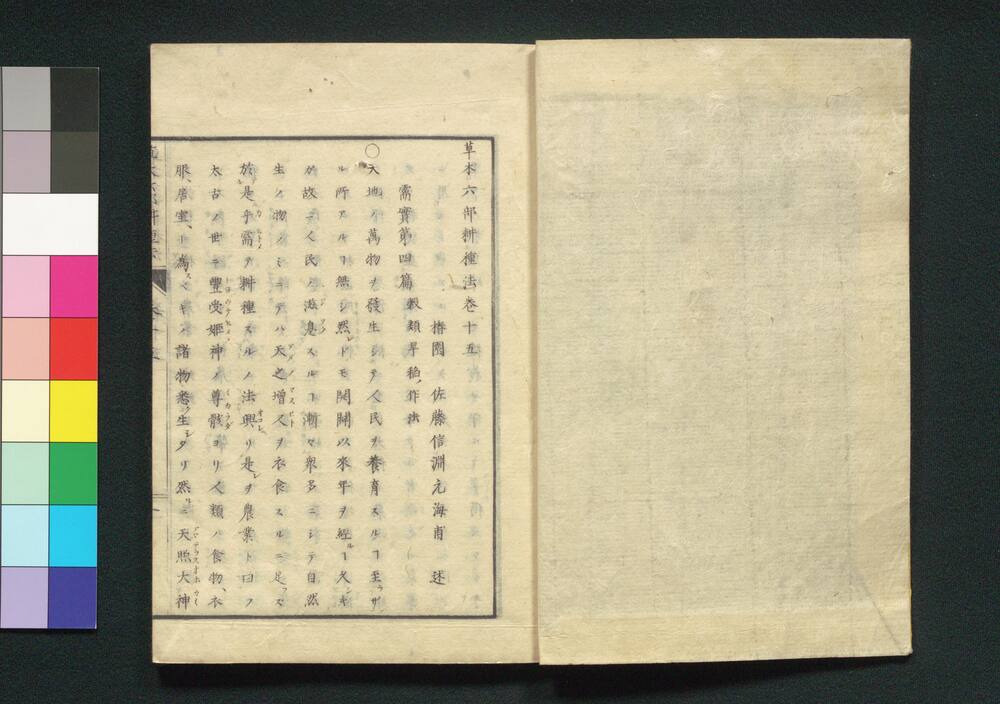 草木六部耕種法巻十五
椿園 佐藤信淵元海甫 述
需實第四篇 穀類早稲ノ作法
○天地ノ萬物ヲ發生シテ人民ヲ養育スルヿ至ラザ
ル所アルヿ無シ然レドモ開闢以來年ヲ經ルヿ久シキ
ガ故ニ人民ノ滋息スルヿ漸々衆多ニシテ自然
生ノ物ノミニテハ天之增人ヲ衣食スルニ足ラズ
於是乎需ヲ耕種スルノ法興リ是レヲ農業ト曰フ
太古ノ世ニ豐受姫神ノ尊骸ヨリ人類ノ食物、衣
服、居室、ト為スベキノ諸物悉ク生シタリ然ルニ天照大神